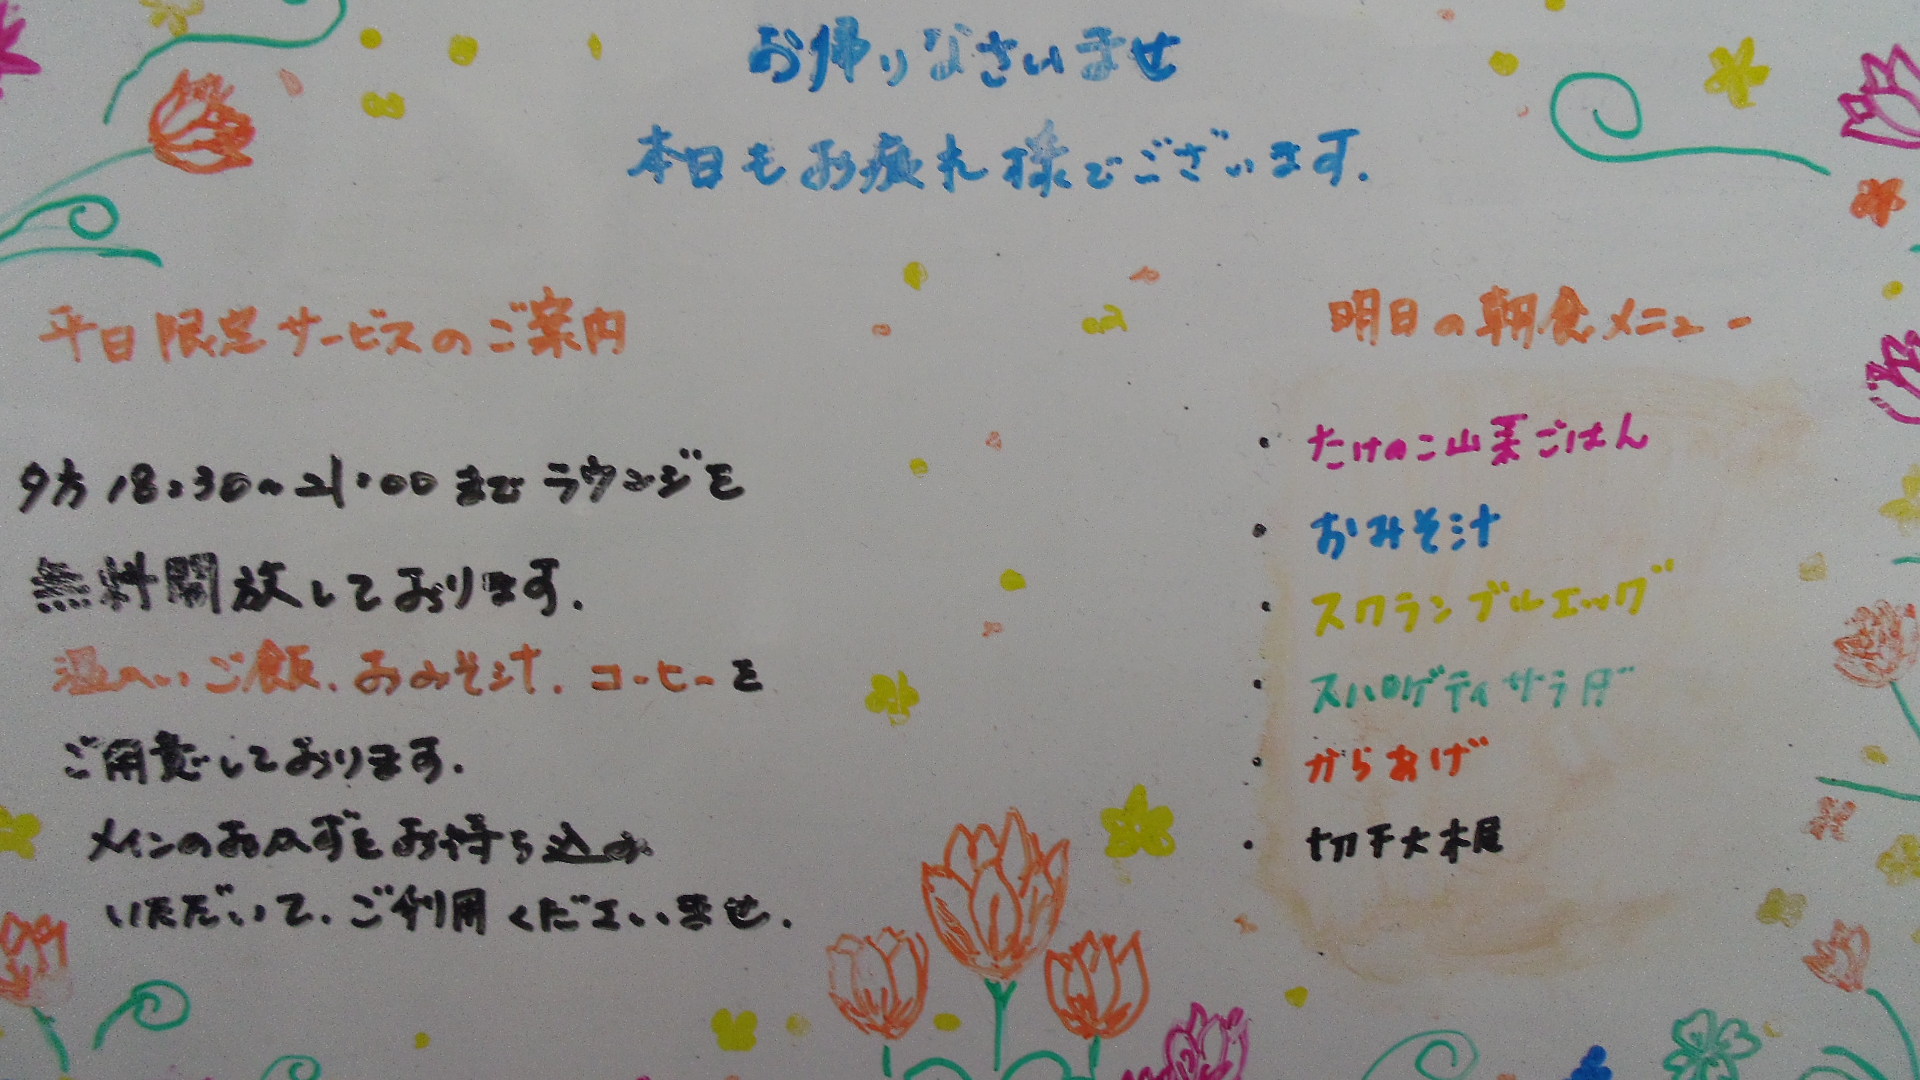 お帰りなさいませ
本日もお疲れ様でございます.
平日限定サービスのご案内
夕方18:30〜21:00までラウンジを
無料開放しております.
温かいご飯.おみそ汁.コーヒーを
ご用意しております.
メインのおかずをお持ち込み
いただいて.ご利用くださいませ.
明日の朝食メニュー
・たけのこ山菜ごはん
・おみそ汁
・スクランブルエッグ
・スパゲティサラダ
・からあげ
・切干大根